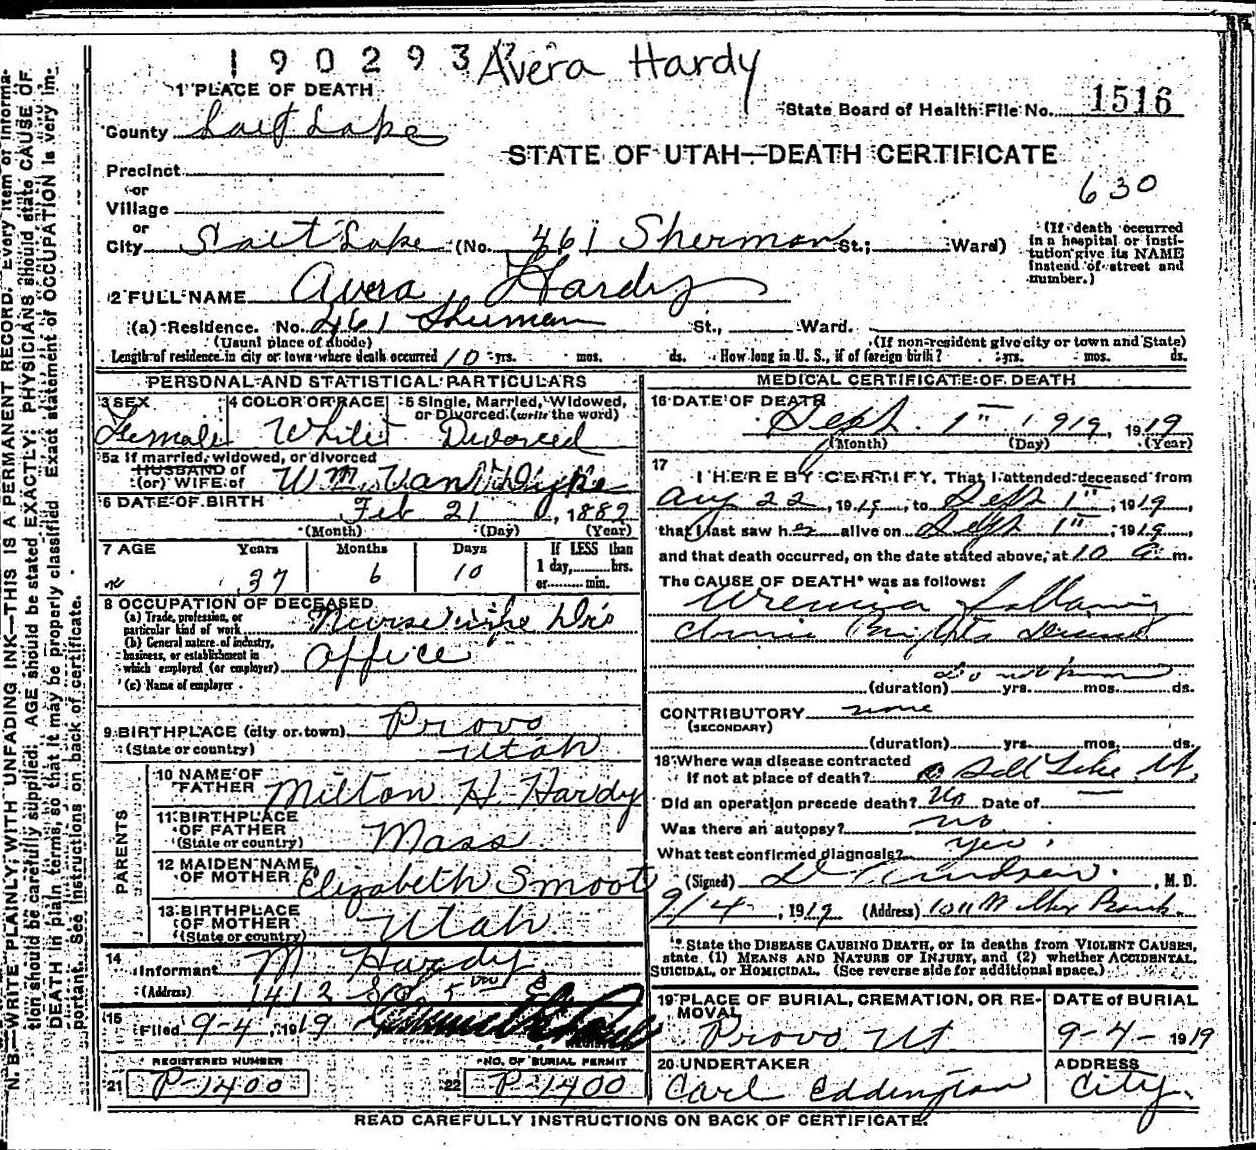 190293 Avera Hardy
1 PLACE OF DEATH
State Board of Health File No. 1516
County Salt Lake
STATE OF UTAH—DEATH CERTIFICATE
Precinct
or
630
Village
or
City Salt Lake (No. 461 Sherman St.; Ward)
(If death occurred in a hospital or institution give its NAME instead of street and number.)
2 FULL NAME Avera Hardy
(a) Residence. No. 461 Sherman St., Ward.
(Usual place of abode) (If non-resident give city or town and State)
Length of residence in city or town where death occurred 10 yrs. mos. ds. How long in U. S., if of foreign birth? yrs. mos. ds.
PERSONAL AND STATISTICAL PARTICULARS
3 SEX 4 COLOR OR RACE 5 Single, Married, Widowed, or Divorced (write the word)
Female White Divorced
5a If married, widowed, or divorced
HUSBAND of
(or) WIFE of Wm Van
6 DATE OF BIRTH Feb 21, 1882
(Month) (Day) (Year)
7 AGE Years Months Days If LESS than
1 day, hrs.
or min.
37 6 10
8 OCCUPATION OF DECEASED
(a) Trade, profession, or particular kind of work Nurse in the Drs
(b) General nature of industry, business, or establishment in which employed (or employer) office
(c) Name of employer
9 BIRTHPLACE (city or town) Provo
(State or country) Utah
PARENTS
10 NAME OF FATHER Milton H. Hardy
11 BIRTHPLACE OF FATHER
(State or country) Mass
12 MAIDEN NAME OF MOTHER Elizabeth Smoot
13 BIRTHPLACE OF MOTHER
(State or country) Utah
14
Informant M Hardy
(Address) 1412 So 5th E
15
Filed 9-4, 1919
REGISTERED NUMBER NO. OF BURIAL PERMIT
21 P-1400 22 P-1400
MEDICAL CERTIFICATE OF DEATH
16 DATE OF DEATH
Sept. 1" 1919, 1919
(Month) (Day) (Year)
17
I HEREBY CERTIFY, That I attended deceased from
Aug 22, 1919, to Sept 1", 1919,
that I last saw her alive on Sept 1", 1919,
and that death occurred, on the date stated above, at 10 a. m.
The CAUSE OF DEATH* was as follows:
Uremia following
Chronic Brights Disease
(duration) yrs. mos. ds.
CONTRIBUTORY none
(SECONDARY)
(duration) yrs. mos. ds.
18 Where was disease contracted
if not at place of death? Salt Lake, Ut.
Did an operation precede death? No Date of
Was there an autopsy? no
What test confirmed diagnosis? yes.
(Signed) , M. D.
9/4, 1919 (Address)
* State the DISEASE CAUSING DEATH, or in deaths from VIOLENT CAUSES,
state (1) MEANS AND NATURE OF INJURY, and (2) whether ACCIDENTAL,
SUICIDAL, or HOMICIDAL. (See reverse side for additional space.)
19 PLACE OF BURIAL, CREMATION, OR REMOVAL DATE of BURIAL
Provo Ut 9-4-1919
20 UNDERTAKER ADDRESS
Carl Eddington City.
READ CAREFULLY INSTRUCTIONS ON BACK OF CERTIFICATE.
N. B.—WRITE PLAINLY, WITH UNFADING INK—THIS IS A PERMANENT RECORD. Every item of informa-
tion should be carefully supplied. AGE should be stated EXACTLY. PHYSICIANS should state CAUSE OF
DEATH in plain terms, so that it may be properly classified. Exact statement of OCCUPATION is very im-
portant. See instructions on back of certificate.